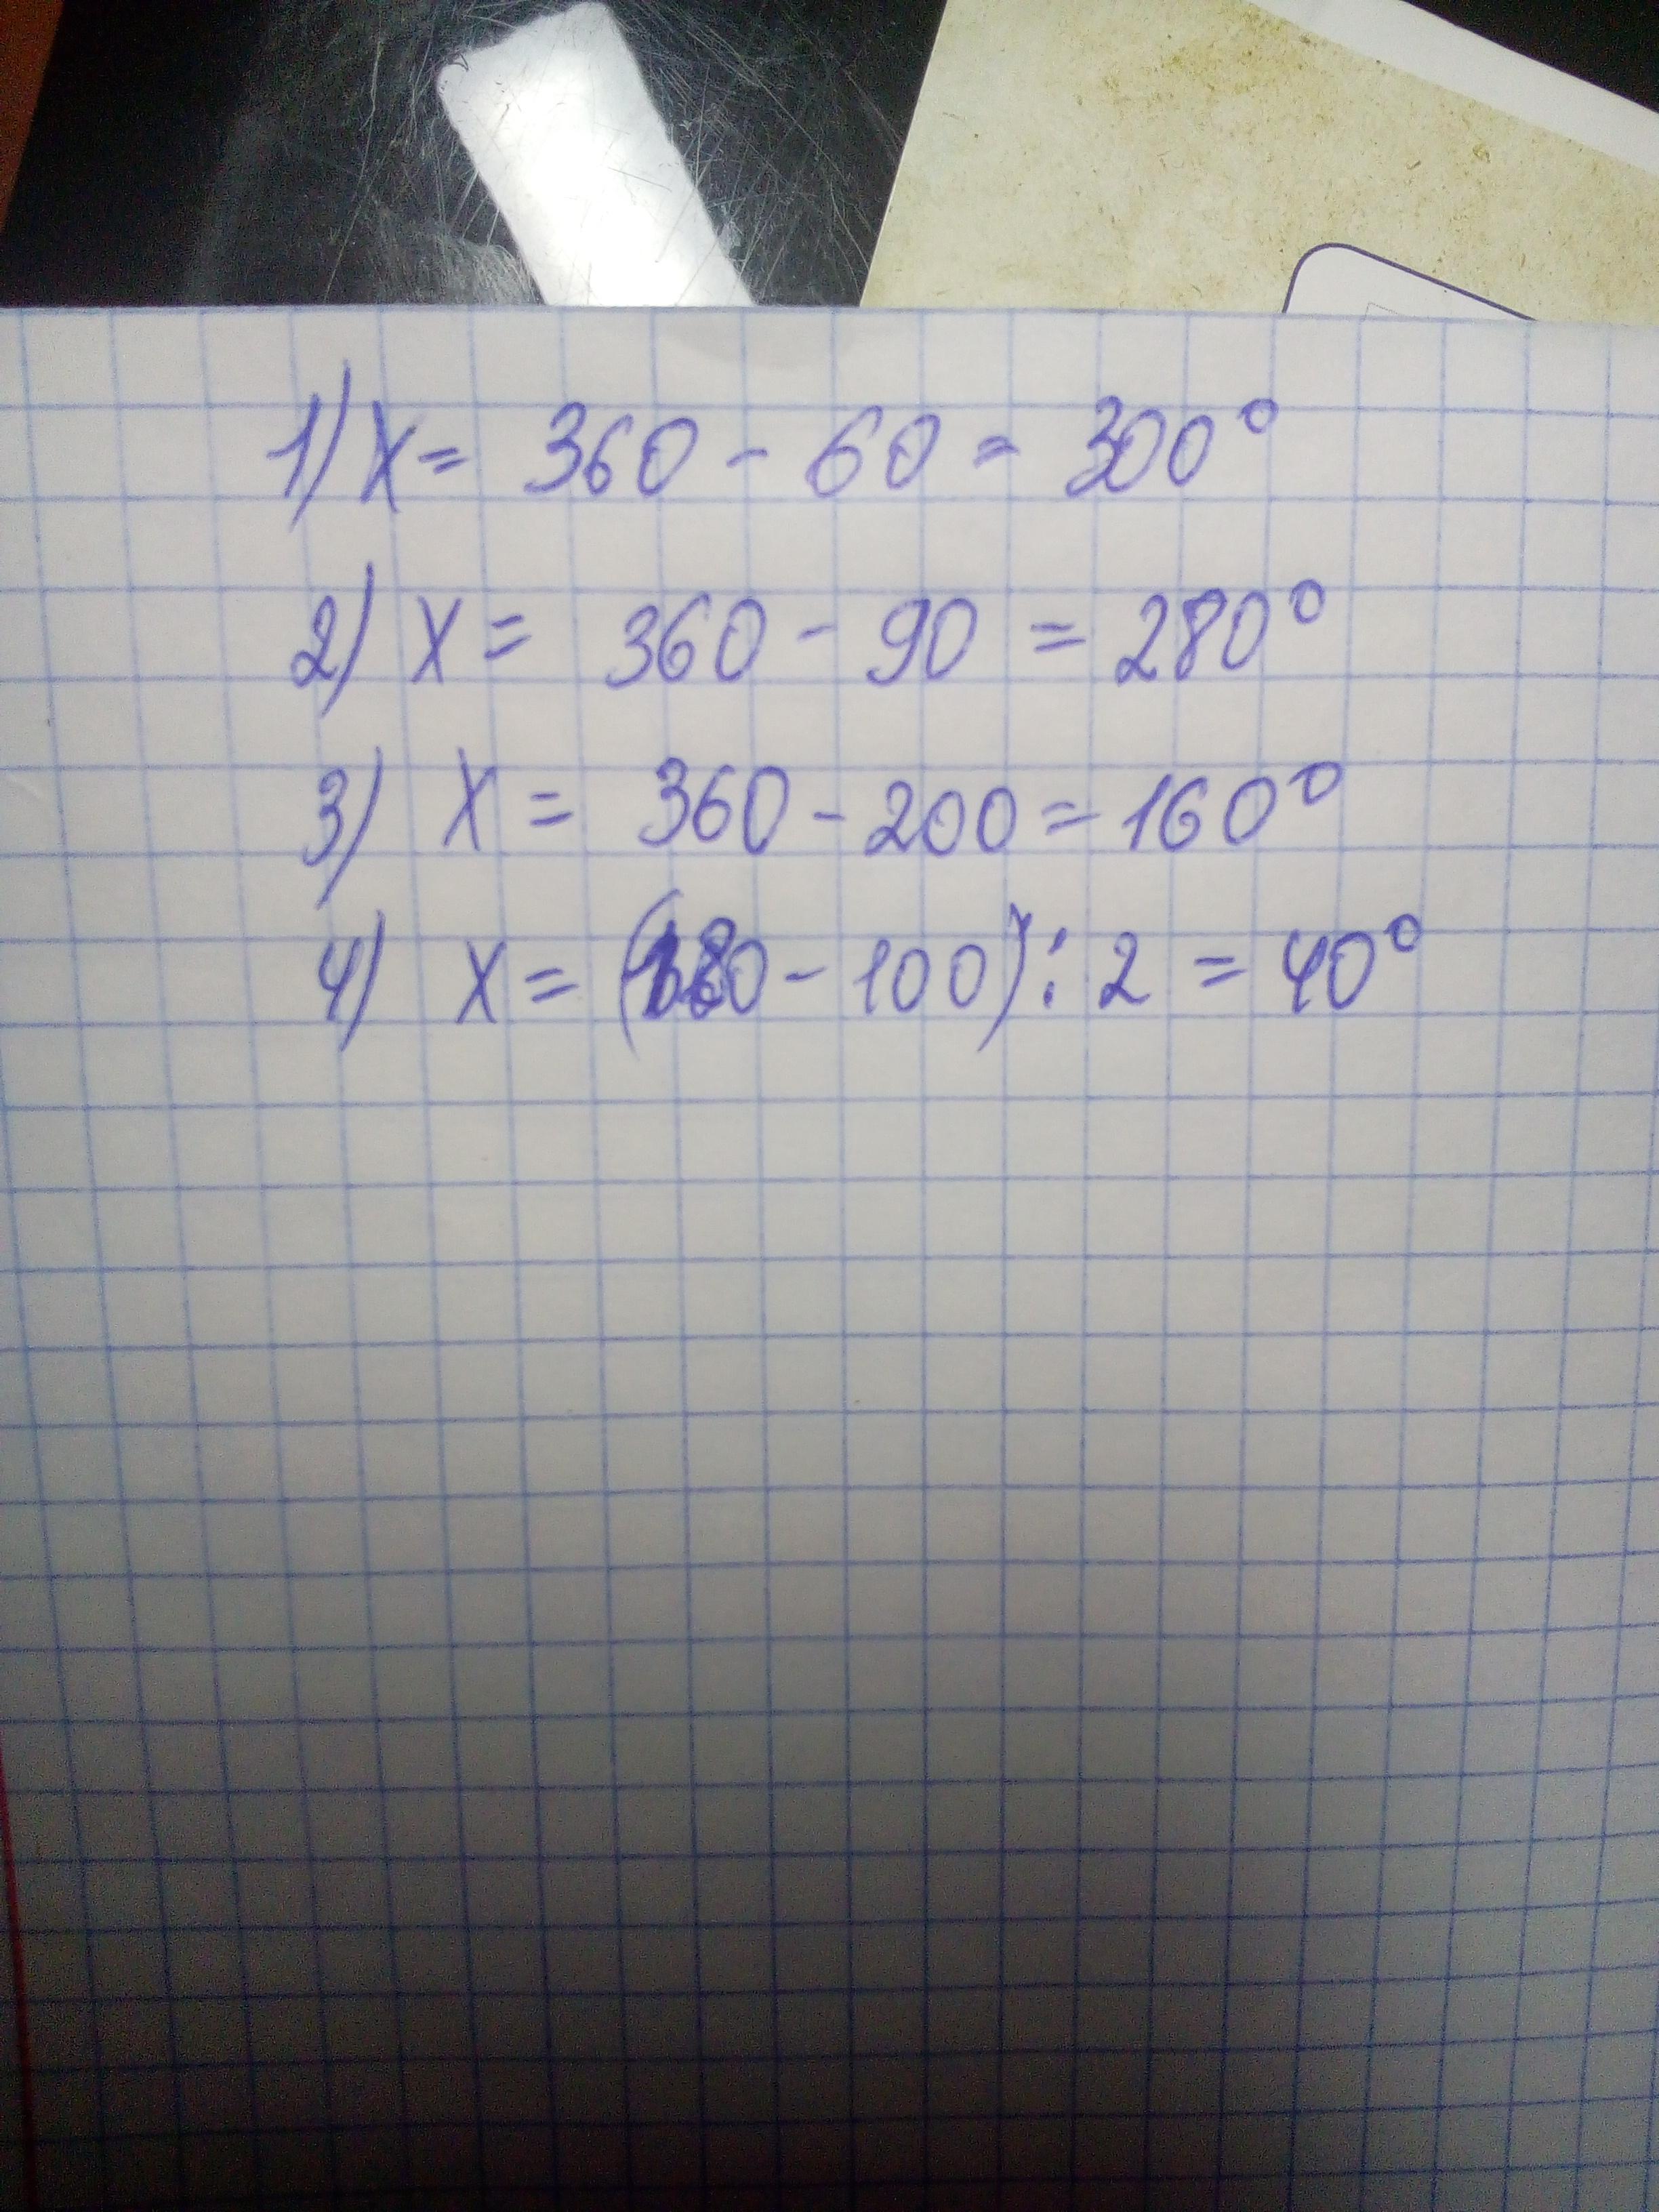 1) x = 360 - 60 = 300°
2) x = 360 - 90 = 280°
3) x = 360 - 200 = 160°
4) x = (180 - 100) : 2 = 40°